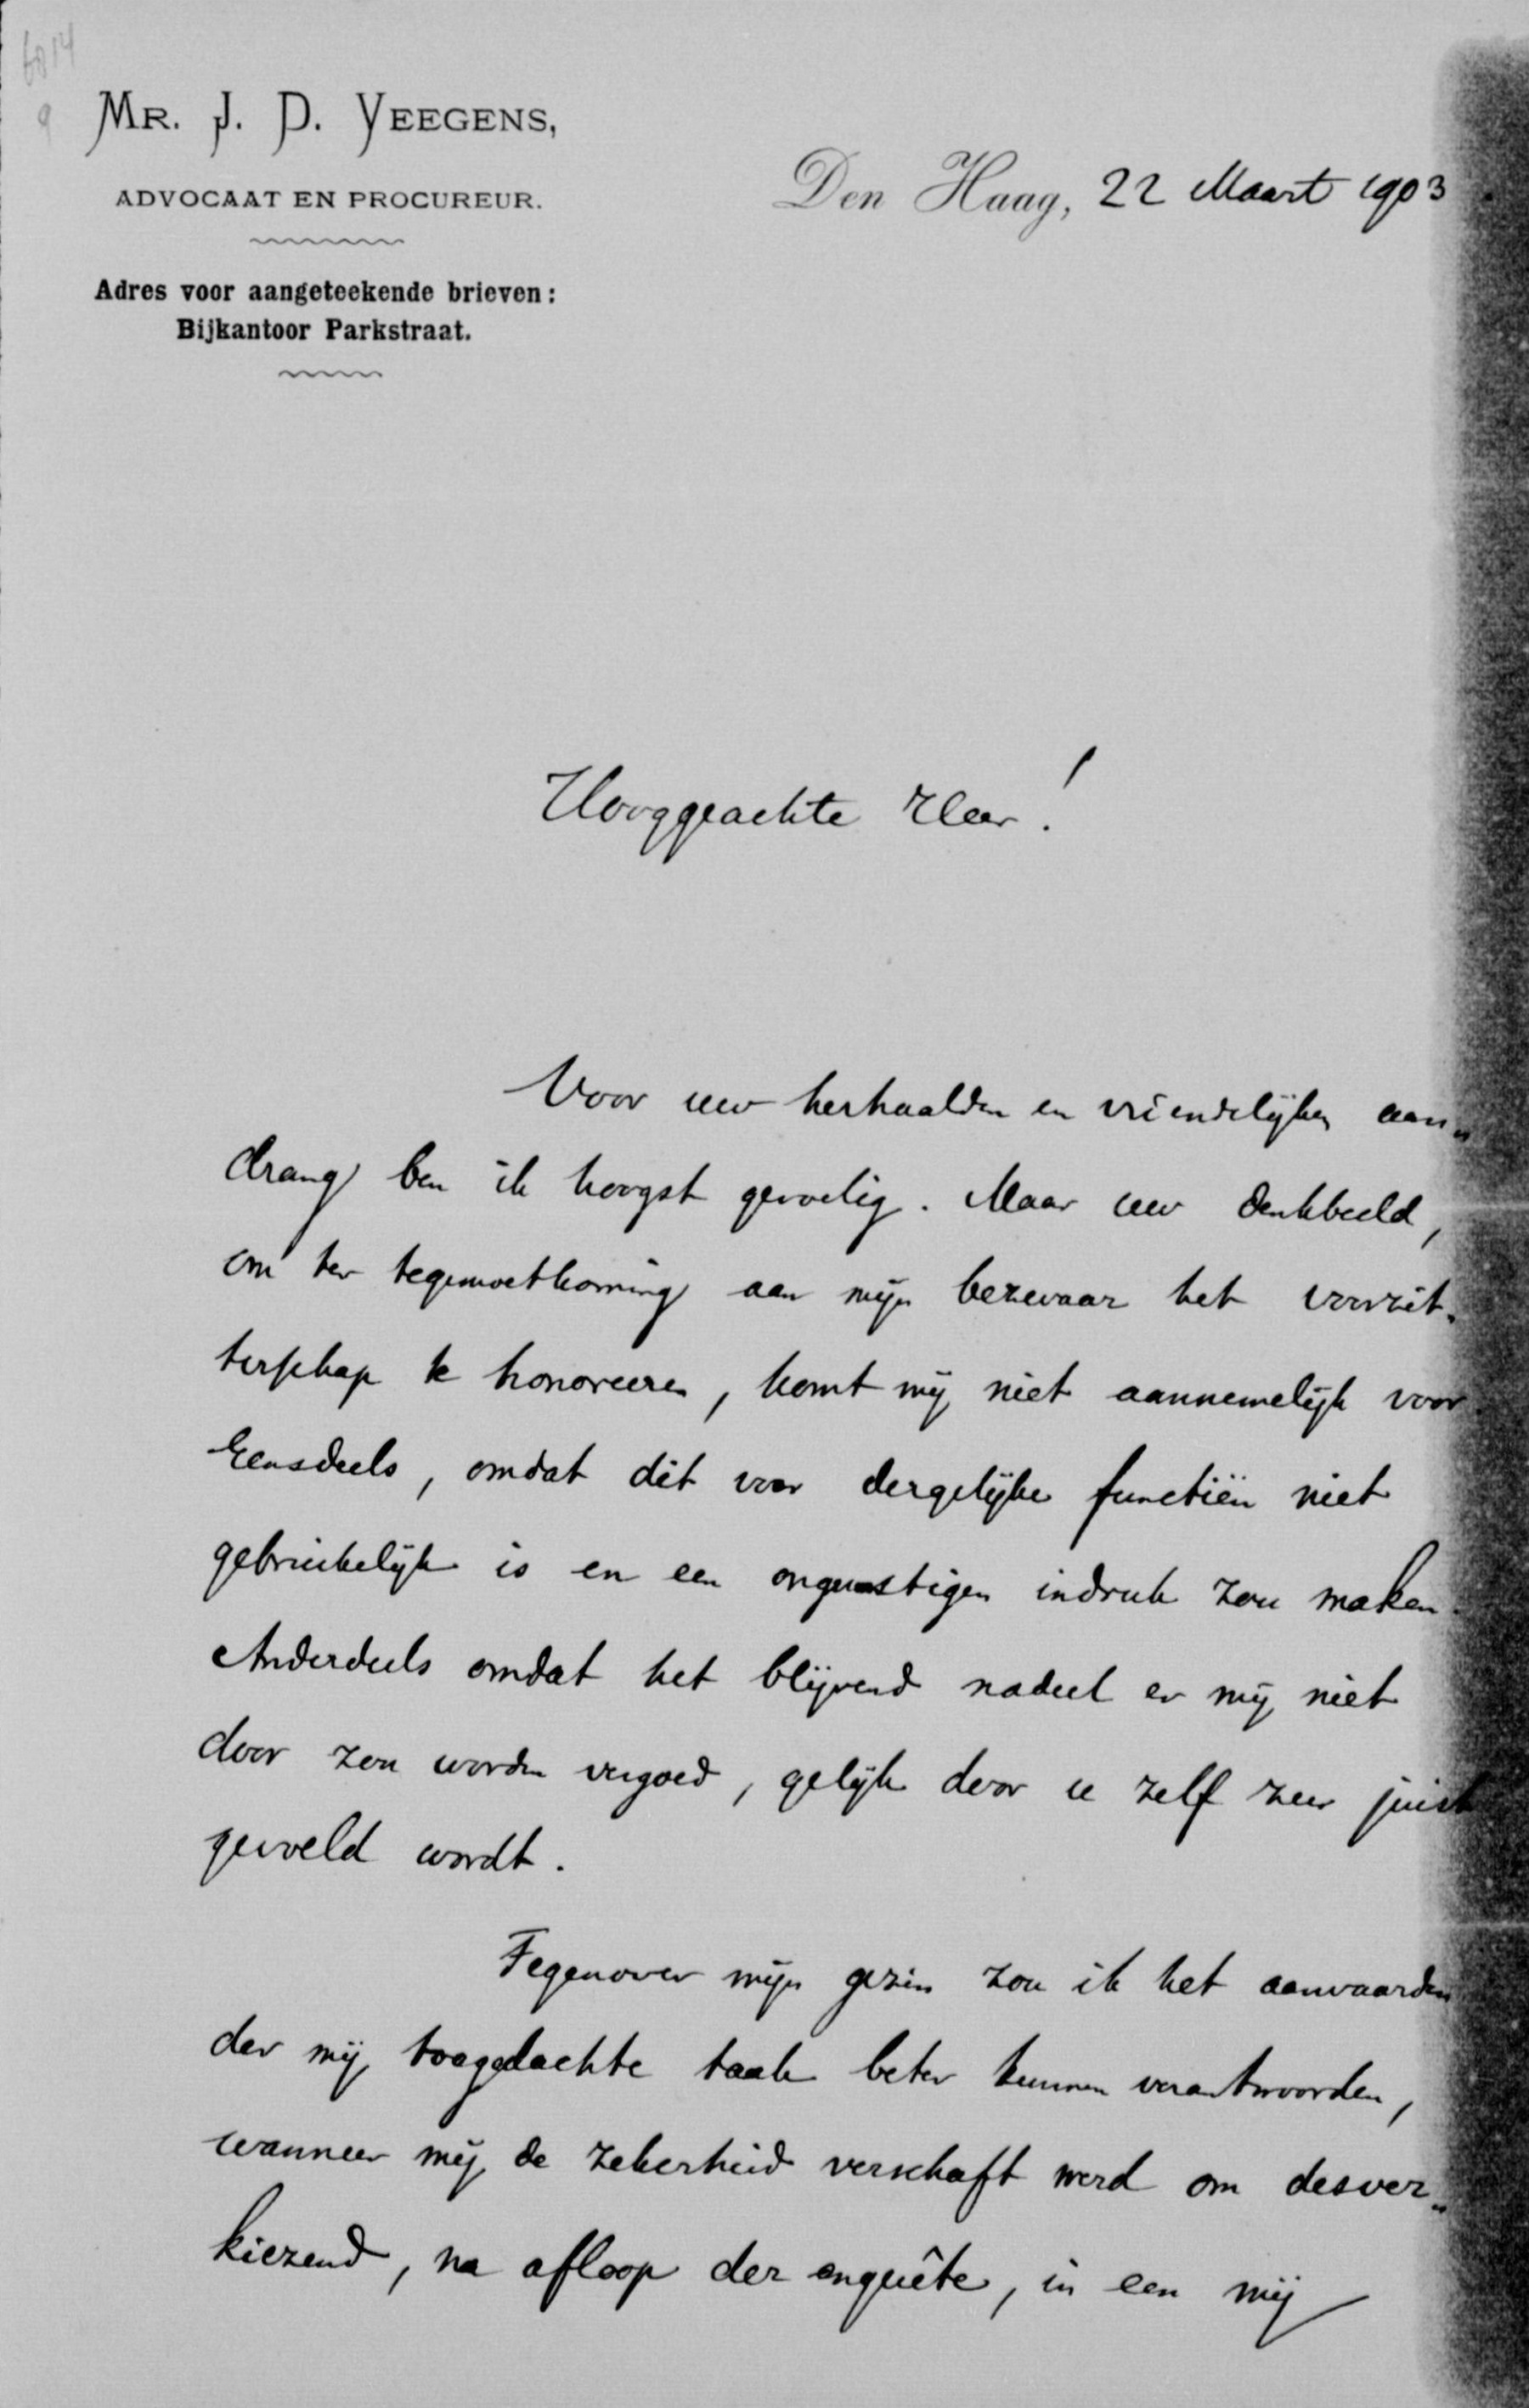 6814
9
MR. J. D. VEEGENS,
ADVOCAAT EN PROCUREUR.
Adres voor aangeteekende brieven:
Bijkantoor Parkstraat.
Den Haag, 22 Maart 1903
Hooggeachte Heer!
Voor uw herhaalden en vriendelijken aan„
drang ben ik hoogst gevoelig. Maar uw denkbeeld,
om ter tegemoetkoming aan mijn bezwaar het voorzit„
terschap te honoreeren, komt mij niet aannemelijk voor.
Eensdeels, omdat dit voor dergelijke functiën niet
gebruikelijk is en een ongunstigen indruk zou maken.
Anderdeels omdat het blijvend nadeel er mij niet
door zou worden vergoed, gelijk door u zelf zeer juist
gevoeld wordt.
Tegenover mijn gezin zou ik het aanvaarden
der mij toegedachte taak beter kunnen verantwoorden,
wanneer mij de zekerheid verschaft werd om desver„
kiezend, na afloop der enquête, in een mij